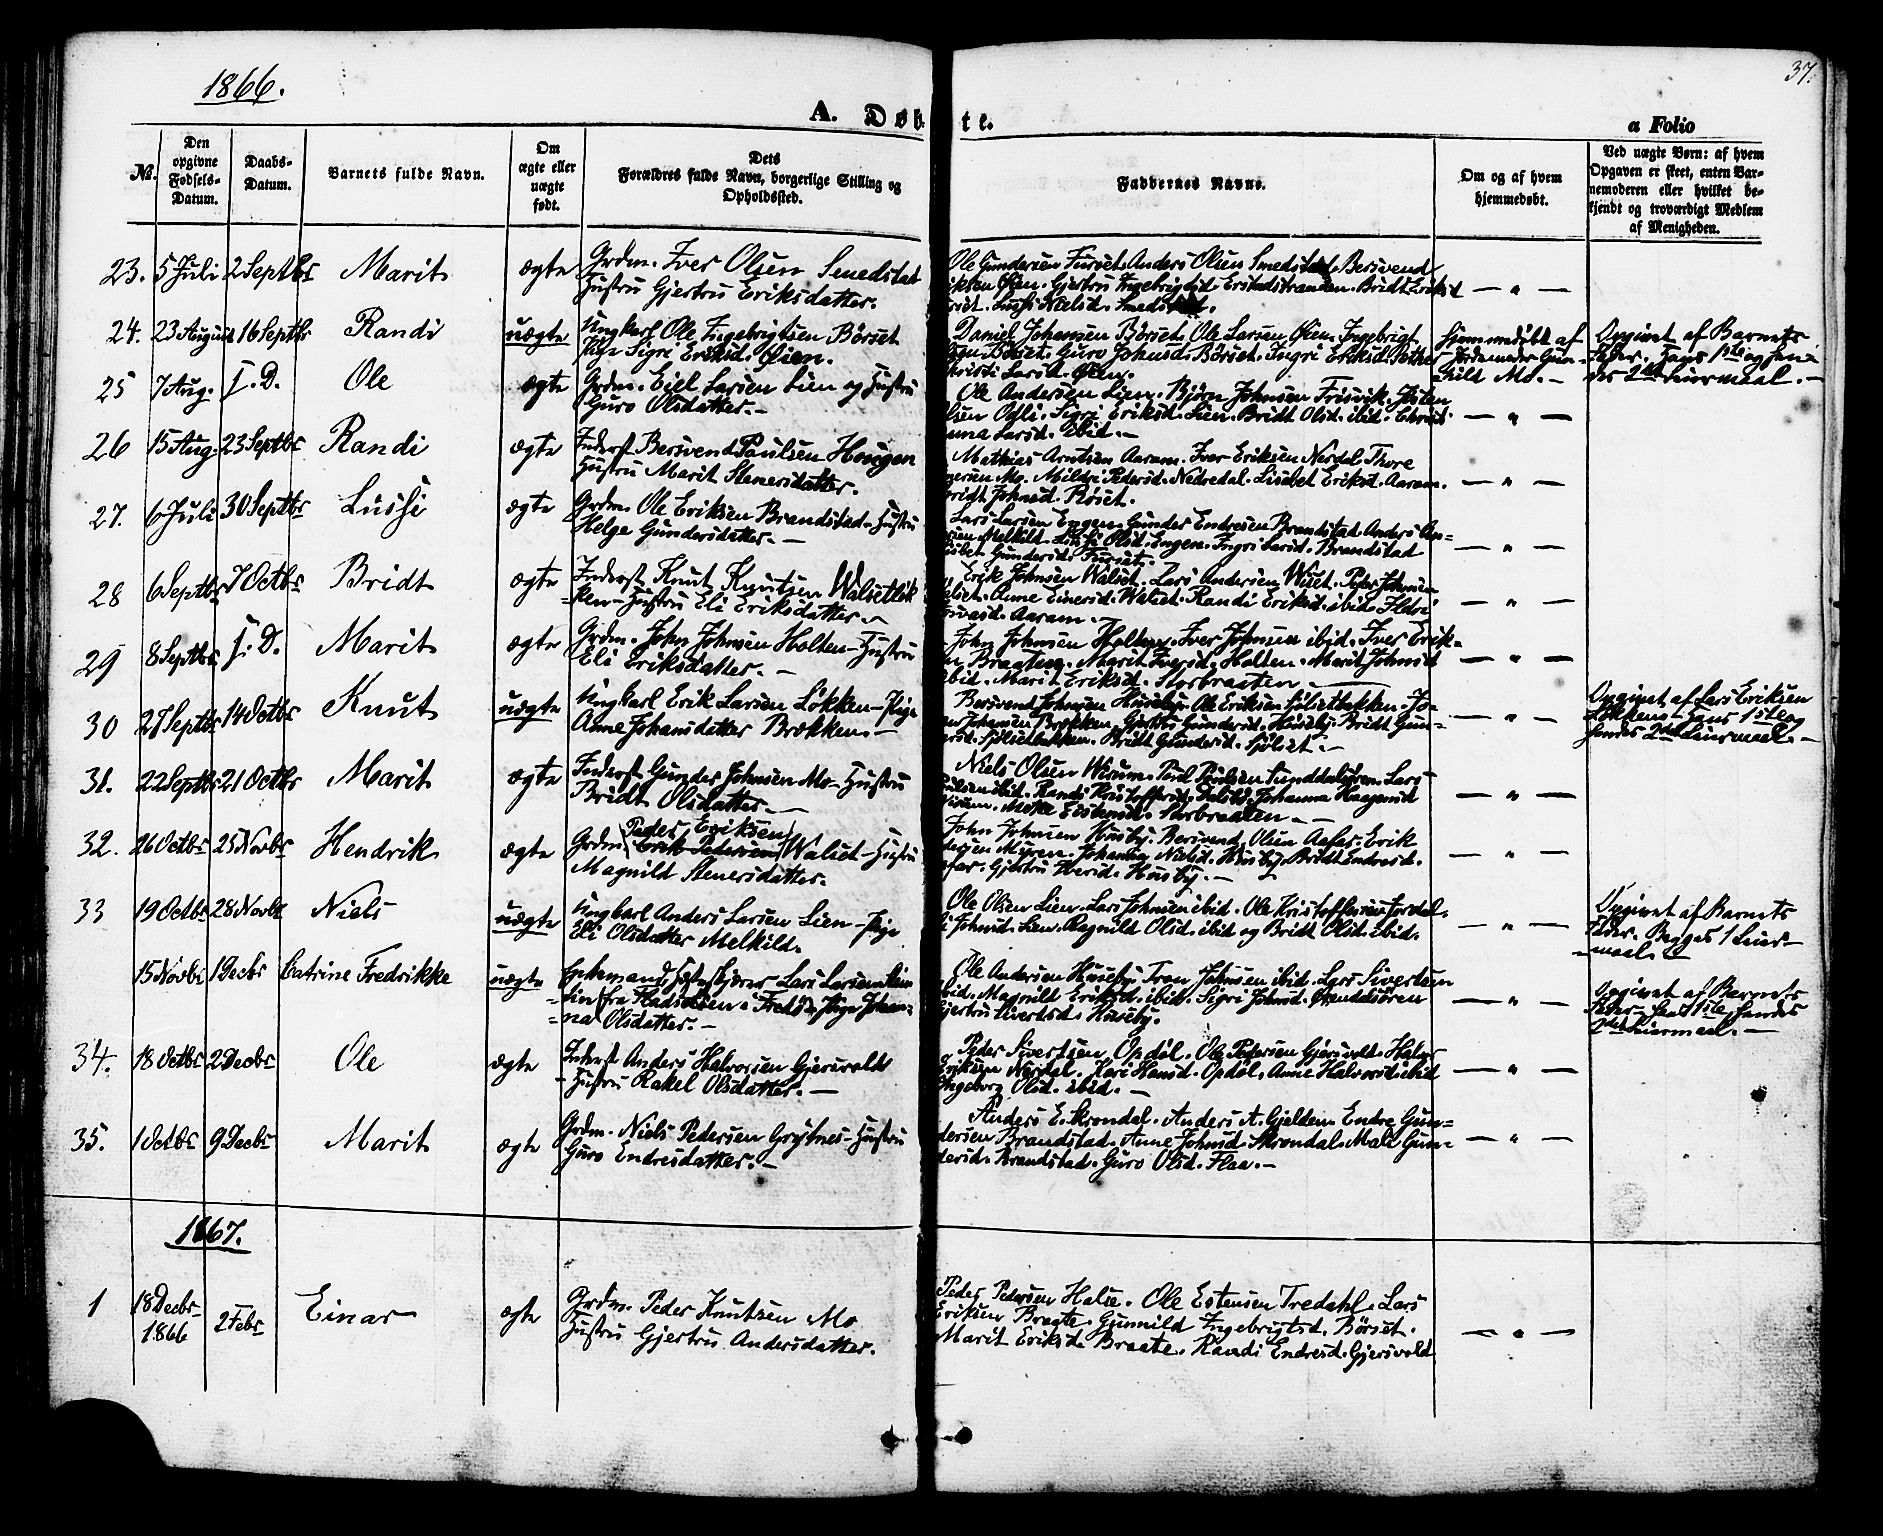 1866.
37.
A. Døbte.
a Folio
No.
Den opgivne Fødsels-Datum.
Daabs-Datum.
Barnets fulde Navn.
Om ægte eller uægte født.
Dets Forældres fulde Navn, borgerlige Stilling og Opholdssted.
Faddernes Navne.
Om og af hvem hjemmedøbt.
Ved uægte Børn: af hvem Opgaven er skeet, enten Barnemoderen eller hvilket bekjendt og troværdigt Medlem af Menigheden.
23. 5 Juli 2 Septbr Marit ægte Grdm. Iver Olsen Smedstad
Hustru Gjertru Eriksdatter.
Ole Gundersen Furset. Anders Olsen Smedstad. Bersvend
Øien. Gjertru Ingebrigtsd Erstadstranden. Bridt Eriksd
Lussi Nielsd. Smedstad. — " —
24. 23 August 16 Septbr Randi uægte Ungkarl Ole Ingebrigtsen Börset
Pige Sigri Eriksd. Øien.
Daniel Johansen Börset. Ole Larsen Øien. Ingebrigt
Börset. Guro Johnsd. Börset. Ingri Eriksd.
Larsd. Øien.
Hjemmedöbt af
Jordemoder Gun-
hild Mo. —
Opgivet af Barnets
Fader. Hans 1ste og hen-
des 2det Leiermaal. —
25 7 Aug. I. D. Ole ægte Grdm. Eiel Larsen Lien og Hustru
Guro Olsdatter. —
Ole Andersen Lien. Björn Johnsen Frisvik. Josten
Olsen Odli. Sigri Eriksd. Lien. Bridt Olsd. ibid.
Larsd. ibid. — — " —
26 15 Aug. 23 Septbr Randi ægte Inderst Bersvend Paulsen Hougen
Hustru Marit Stenersdatter.
Mathias Arntsen Aaram. Iver Eriksen Nerdal Thore
Mo. Mildri Pedersd. Nedredal. Lisebet Eriksd. Aaram.
Bridt Johnsd. Röset. — " —
27. 6 Juli 30 Septbr Lussi ægte Grdm. Ole Eriksen Brandstad. Hustru
Helge Gundersdatter. —
Lars Larsen Engen. Gunder Endresen Brandstad Anders An-
Melkild. Lussi Olsd. Engen. Ingri Larsd. Brandstad
Gundersd. Furset. — " —
28 6 Septbr 7 Octbr Bridt ægte Inderst Knut Knutsen Walsetlök
ken — Hustru Eli Eriksdatter. —
Erik Johnsen Walset. Lars Andersen Peder Johnsen
Walset. Anne Einersd. Walset. Randi Eriksd. ibid
Aaram. — — " —
29 8 Septbr I. D. Marit ægte Grdm. John Johnsen Holten — Hustru
Eli Eriksdatter. —
John Johnsen Holten. Iver Johnsen ibid. Iver Erik-
Braaten. Marit Iversd. Holten. Marit Johnsd
ibid. Marit Eriksd. Storbraaten. — — " —
30 27 Septbr 14 Octbr Knut uægte Ungkarl Erik Larsen Lökken — Pige
Anne Johansdatter Brækken. —
Bersvend Johnsen Huseby. Ole Eriksen Sjölsetbakken. Jo-
Johansen Brækken. Gjertru Gundersd. Huseby. Bridt Gun-
Sjölsetbakken. Bridt Gundersd. Sjölset. — — " —
Opgivet af Lars Eriksen
Lökken — Hans 1ste og
hendes 2det Leiermaal. —
31. 22 Septbr 21 Octbr Marit ægte Inderst Gunder Johnsen Mo — Hustru
Bridt Olsdatter. —
Niels Olsen Wirum. Paul Paulsen Sunddalsören. Lars
ibid. Randi Kristoffersd. Johanna Haagensd
Storbraaten. — — " —
32. 26 Octbr 25 Novbr Hendrik ægte Grdm. (Peder Eriksen)
Erik Pedersen Walset — Hustru
Magnild Stenersdatter.
John Johnsen Husby. Bersvend Olsen Aafar. Erik
Myren. Johanna Nielsd. Husby. Bridt Endresd.
Gjertru Iversd. Husby. — — " —
33 19 Octbr 28 Novbr Niels uægte Ungkarl Anders Larsen Lien — Pige
Eli Olsdatter Melkild.
Ole Olsen Lien. Lars Johnsen ibid. Ole Kristoffersen Jordal.
Johnsd. Lien. Ragnild Olsd. ibid og Bridt Olsd. ibid. — " —
Opgivet af Barnets
Fader. Begges 1 Leier-
maal.
15 Novbr 1 Decbr Catrine Fredrikke uægte Egtemand, Lars Larsen
fra i Fredö. Pige Johan-
na Olsdatter. —
Ole Andersen Huseby. Tron Johnsen ibid. Lars Sivertsen
ibid. Magnild Eriksd. ibid. Sigri Johnsd. Ørendalsören
Gjertru Sivertsd. Huseby. — " —
Opgivet af Barnets
Fader — hans 1ste, hendes
2det Leiermaal. —
34. 18 Octbr 2 Decbr Ole ægte Inderst Anders Halvorsen Gjersvold
Hustru Rakel Olsdatter. —
Peder Sivertsen Opdöl. Ole Pedersen Gjersvold. Halvor
Eriksen Nordal. Kari Hansd. Opdöl. Anne Halvorsd. ibid
Ingeborg Olsd. ibid. — — " —
35. 1 Octbr 9 Decbr Marit ægte Grdm. Niels Pedersen Grytnes — Hustru
Guro Endresdatter. —
Anders E. Skrondal. Anders A. Gjeldem Endre Gun-
dersen Brandstad. Anne Johnsd. Skrondal. Mali Gun-
dersd. Brandstad. Guro Olsd. Flaa. — — " —
1867.
1 18 Decbr
1866 2 Febr Einar ægte Grdm. Peder Knutsen Mo
Hustru Gjertru Andersdatter.
Peder Pedersen Halse. Ole Estensen Tredahl. Lars
Eriksen Braate. Gunnild Ingebrigtsd. Börset.
Marit Eriksd. Braate. Randi Endresd. Gjersvold — " —